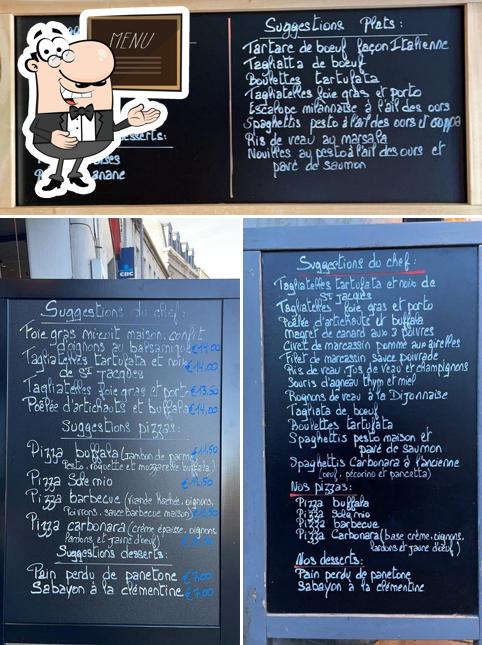 MENU
Suggestions Plats :
Tartare de boeuf façon Italienne
Tagliatta de boeuf
Boulettes tartufata
Tagliatelles foie gras et porto
Escalope milannaise à l'ail des ours
Spaghettis pesto à l'ail des ours et
Ris de veau au marsala
Nouilles au pesto à l'ail des ours et
pavé de saumon
desserts :
CBC
Suggestions du chef :
Foie gras micuit maison, confit
d'oignons au balsamique €14,00
Tagliatelles tartufata et noix
de St Jacques €14,00
Tagliatelles foie gras et porto €13,50
Poêlée d'artichauts et buffala €14,00
Suggestions pizzas :
Pizza buffala (jambon de parme, €11,50
Pesto, roquette et mozzarelle buffala)
Pizza Sole mio
Pizza barbecue (viande hachée, oignons,
Poivrons, sauce barbecue maison)
Pizza carbonara (crème épaisse, oignons,
lardons et jaune d'oeuf)
Suggestions desserts :
Pain perdu de panetone €7,00
Sabayon à la clémentine €7,00
Suggestions du chef :
Tagliatelles tartufata et noix de
St Jacques
Tagliatelles foie gras et porto
Poêlée d'artichauts et buffala
Magret de canard aux 3 poivres
Civet de marcassin pomme aux airelles
Filet de marcassin sauce poivrade
Ris de veau, Jus de veau et champignons
Souris d'agneau thym et miel
Rognons de veau à la Dijonnaise
Tagliata de boeuf
Boulettes tartufata
Spaghettis pesto maison et
pavé de saumon
Spaghettis Carbonara à l'ancienne
(oeuf, pécorino et pancetta)
Nos pizzas :
Pizza buffala
Pizza Sole mio
Pizza barbecue
Pizza Carbonara (base crème, oignons,
lardons et jaune d'oeuf)
Nos desserts :
Pain perdu de panetone
Sabayon à la clémentine